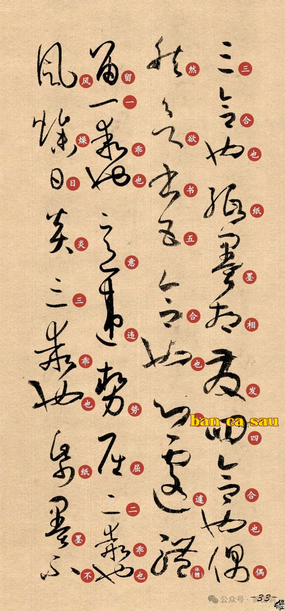 三合也纸墨相发四合也偶
然欲书五合也心遽體
留一乖也意违势屈二乖也
风燥日炎三乖也纸墨不
ban ca sau
公众号
33